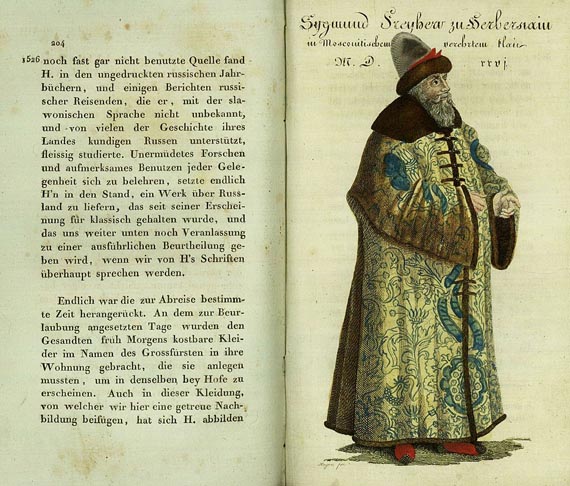 204
1526 noch fast gar nicht benutzte Quelle fand
H. in den ungedruckten russischen Jahr-
büchern, und einigen Berichten russi-
scher Reisenden, die er, mit der sla-
wonischen Sprache nicht unbekannt,
und von vielen der Geschichte ihres
Landes kundigen Russen unterstützt,
fleissig studierte. Unermüdetes Forschen
und aufmerksames Benutzen jeder Gele-
genheit sich zu belehren, setzte endlich
H'n in den Stand, ein Werk über Russ-
land zu liefern, das seit seiner Erschei-
nung für klassisch gehalten wurde, und
das uns weiter unten noch Veranlassung
zu einer ausführlichen Beurtheilung ge-
ben wird, wenn wir von H's Schriften
überhaupt sprechen werden.
Endlich war die zur Abreise bestimm-
te Zeit herangerückt. An dem zur Beur-
laubung angesetzten Tage wurden den
Gesandten fruh Morgens kostbare Klei-
der im Namen des Grossfürsten in ihre
Wohnung gebracht, die sie anlegen
mussten, um in denselben bey Hofe zu
erscheinen. Auch in dieser Kleidung,
von welcher wir hier eine getreue Nach-
bildung beifügen, hat sich H. abbilden
Sygmund Freyherr zu Herberstain
in Moscovitischem verehrtem Klaid
M. D. xxvj.